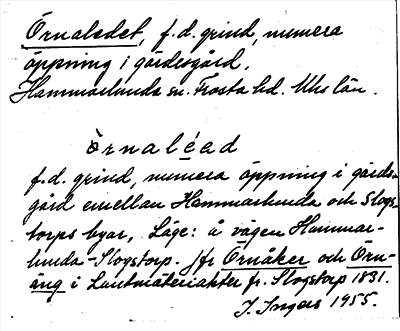 Örnaledet, f.d. grind, numera
öppning i gärdesgård.
Hammarlunda sn. Frosta hd. Mhs län.
örnaléad
f.d. grind, numera öppning i gärds-
gård emellan Hammarlunda och Slogs-
torps byar, Läge: å vägen Hammar-
lunda-Slogstorp. jfr Örnåker och Örn-
äng i Lantmäteriakter fr. Slogstorp 1831.
J. Ingers 1955.